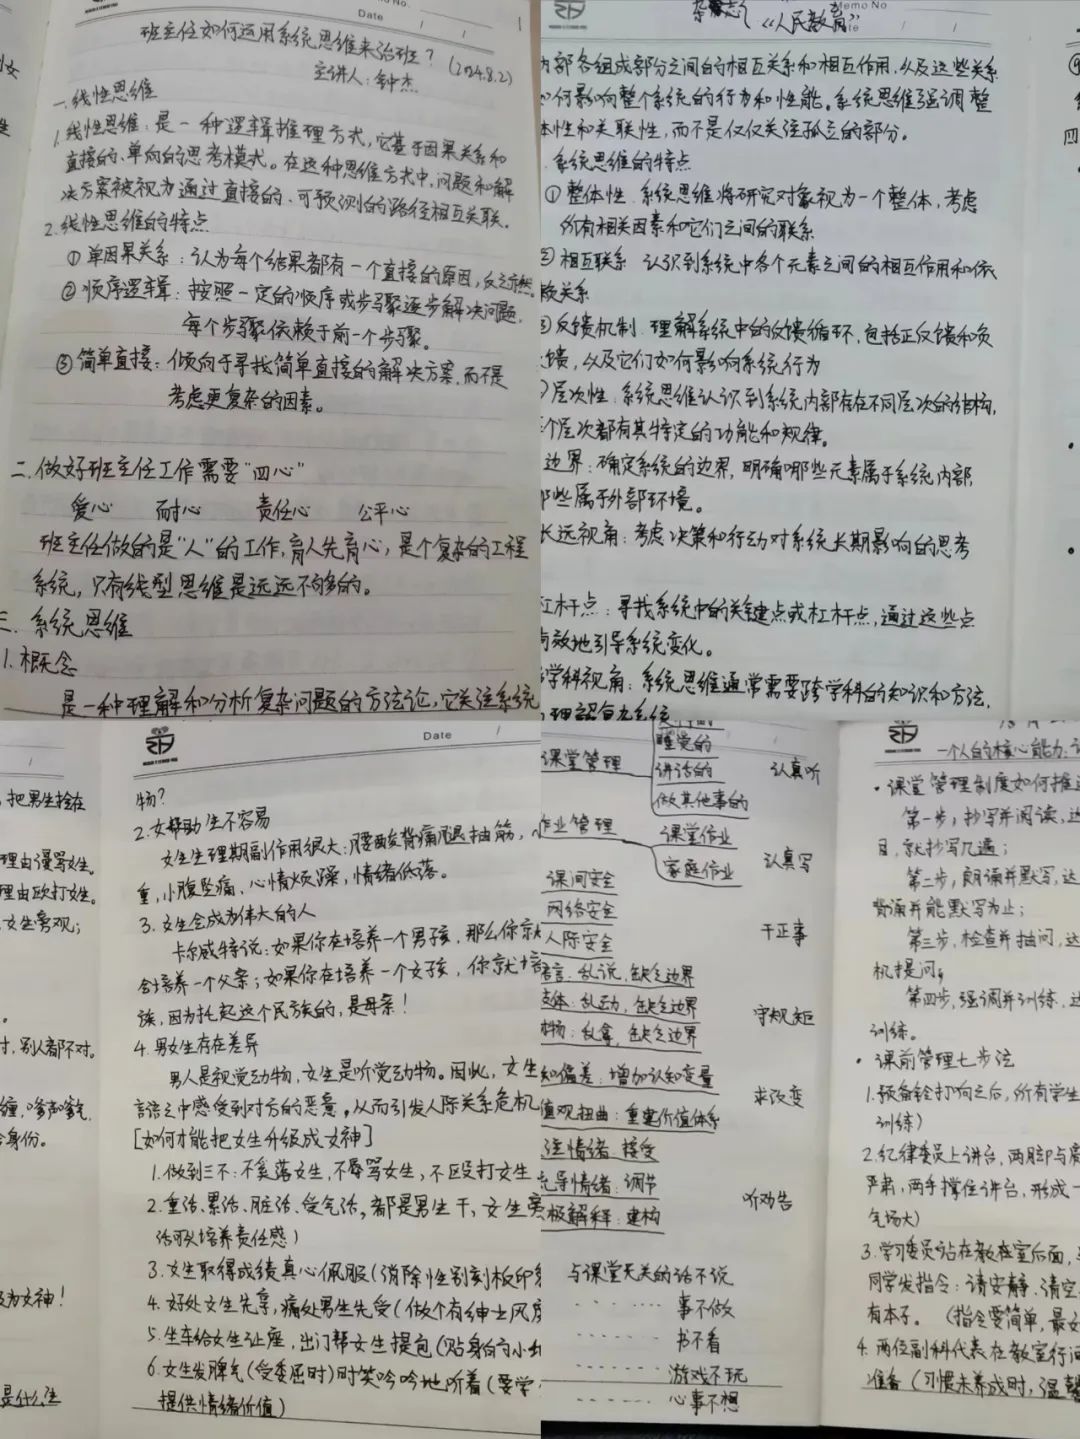 Date
班主任如何运用系统思维来治班？(2024.8.2)
主讲人：钟杰
一.线性思维
1.线性思维：是一种逻辑推理方式，它基于因果关系和
直接的、单向的思考模式。在这种思维方式中，问题和解
决方案被视为通过直接的、可预测的路径相互关联。
2.线性思维的特点
①单因果关系：认为每个结果都有一个直接的原因，反之亦然。
②顺序逻辑：按照一定的顺序或步骤逐步解决问题，
每个步骤依赖于前一个步骤。
③简单直接：倾向于寻找简单直接的解决方案，而不是
考虑更复杂的因素。
二.做好班主任工作需要“四心”
爱心 耐心 责任心 公平心
班主任做的是“人”的工作，育人先育心，是个复杂的工程
系统，只有线型思维是远远不够的。
三.系统思维
1.概念
是一种理解和分析复杂问题的方法论，它关注系统
Memo No
《人民教育》
内部各组成部分之间的相互关系和相互作用，以及这些关系
如何影响整个系统的行为和性能。系统思维强调整
体性和关联性，而不是仅仅关注孤立的部分。
系统思维的特点
①整体性 系统思维将研究对象视为一个整体，考虑
所有相关因素和它们之间的联系
②相互联系 认识到系统中各个元素之间的相互作用和依
赖关系
③反馈机制 理解系统中的反馈循环，包括正反馈和负
反馈，以及它们如何影响系统行为
层次性 系统思维认识到系统内部存在不同层次的结构，
个层次都有其特定的功能和规律。
边界：确定系统的边界，明确哪些元素属于系统内部，
那些属于外部环境。
长远视角：考虑决策和行动对系统长期影响的思考
杠杆点：寻找系统中的关键点或杠杆点，通过这些点
有效地引导系统变化。
学科视角：系统思维通常需要跨学科的知识和方法，
四
把男生拴在
理由谩骂女生。
理由欧打女生。
女生旁观；
时，别人都不对。
身份。
为女神！
Date
物？
2.女帮助生不容易
女生生理期副作用很大：腰酸背痛腿抽筋，
重，小腹坠痛，心情烦躁，情绪低落。
3.女生会成为伟大的人
卡尔威特说：如果你在培养一个男孩，那么你就
会培养一个父亲；如果你在培养一个女孩，你就培
族，因为托起这个民族的，是母亲！
4.男女生存在差异
男人是视觉动物，女生是听觉动物。因此，女生
言语之中感受到对方的恶意，从而引发人际关系危机
[如何才能把女生升级成女神]
1.做到三不：不奚落女生，不辱骂女生，不殴打女生
2.重活、累活、脏活、受气活，都是男生干，女生旁
活可以培养责任感）
3.女生取得成绩真心佩服（消除性别刻板印象
4.好处女生先享，痛处男生先受（做个有绅士风度
5.坐车给女生让座，出门帮女生提包（贴身的小
6.女生发脾气（受委屈时）时笑吟吟地听着（要学
提供情绪价值）
课堂管理
睡觉的
讲话的
做其他事的
认真听
作业管理
课堂作业
家庭作业
认真写
课间安全
网络安全
人际安全
干正事
语言：乱说，缺乏边界
肢体：乱动，缺乏边界
财物：乱拿，缺乏边界
守规矩
知偏差：增加认知变量
值观扭曲：重建价值体系
求改变
注情绪：接受
导情绪：调节
极解释：建构
听劝告
与课堂无关的话不说
事不做
书不看
游戏不玩
心事不想
一个人的核心能力：
·课堂管理制度如何推进
第一步，抄写并阅读，达
目，就抄写几遍；
第二步，朗诵并默写，达
背诵并能默写为止；
第三步，检查并抽问，达
机提问。
第四步，强调并训练，达
训练。
·课前管理七步法
1.预备铃打响之后，所有学生
训练）
2.纪律委员上讲台，两脚与肩
严肃，两手撑住讲台，形成一
气场大）
3.学习委员站在教室后面，
同学发指令：请安静，清空
有本子。（指令要简单，最好
4.两位副科代表在教室行间
准备（习惯未养成时，温馨